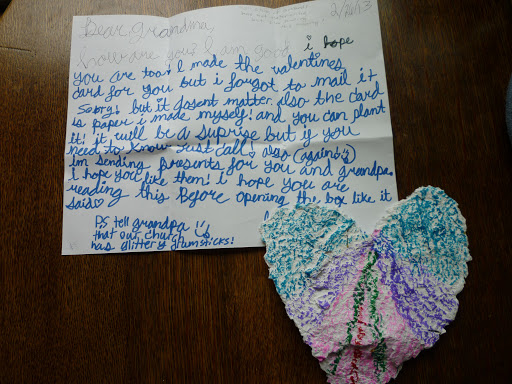 2/26/13
Dear grandma,
how are you? I am good i hope
you are too! I made the valentines
card for you but i forgot to mail it
Sorry! but it dosent matter. also the card
is paper i made myself! and you can plant
it! it will be a suprise but if you
need to know Just call! also (again!)
im sending presents for you and grandpa.
i hope you like them! i hope you are
reading this Before opening the box like it
said
PS tell grandpa
that our church
has glittery drumsticks!